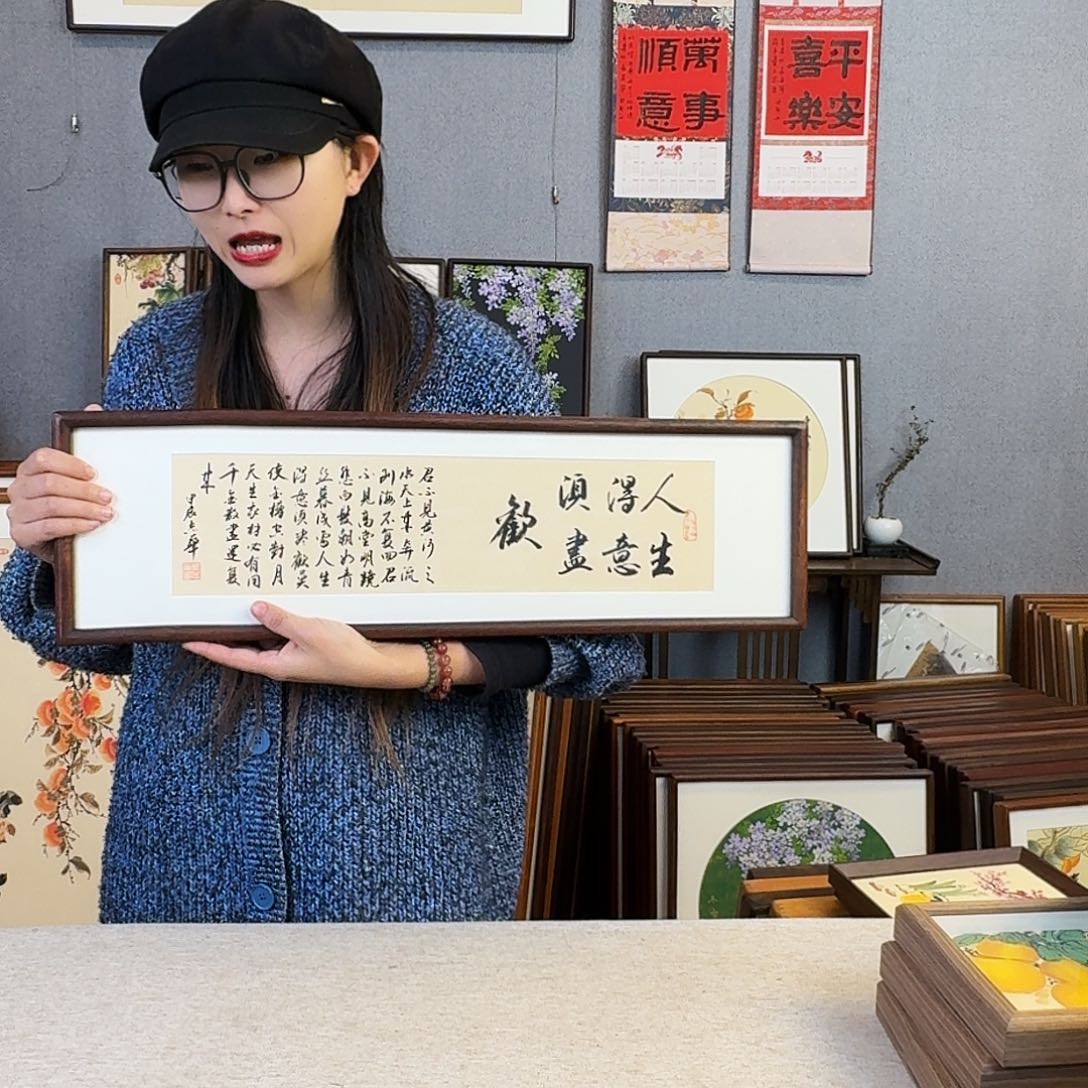 萬事
順意
平安
喜樂
2026
人生
得意
須盡
歡
君不見黃河之
水天上來奔流
到海不复回君
不見高堂明鏡
悲白髮朝如青
丝暮成雪人生
得意須尽歡莫
使金樽空對月
天生我材必有用
千金散盡還复
來
甲辰